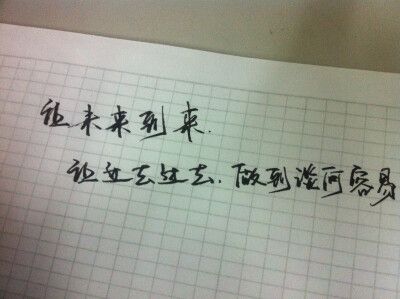 让未来到来.
让过去过去.做到谈何容易